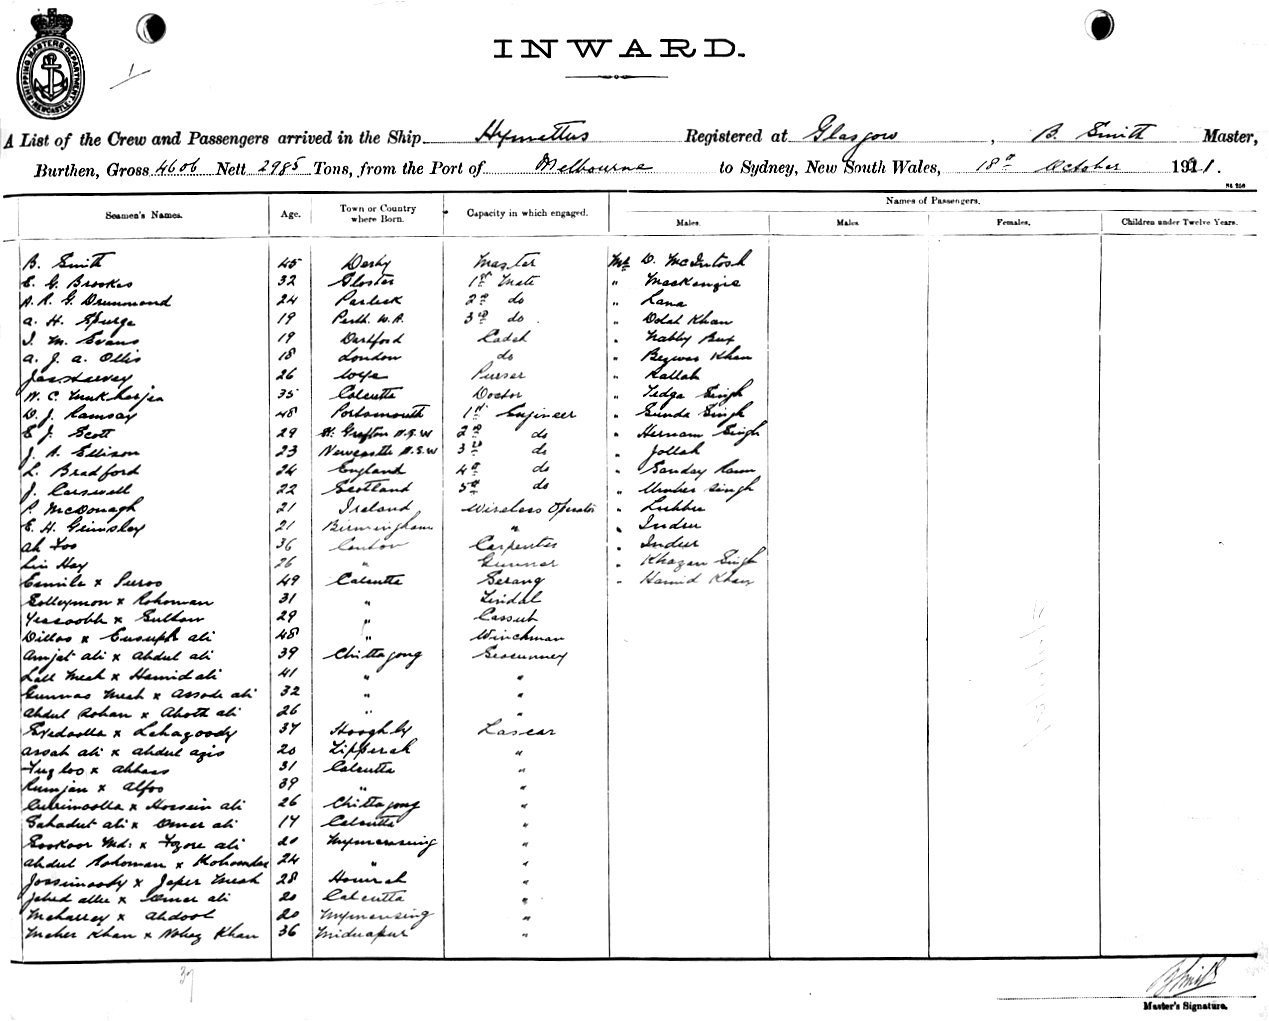 SHIPPING MASTERS DEPARTMENT NEWCASTLE
INWARD.
A List of the Crew and Passengers arrived in the Ship Hymettus Registered at Glasgow, B. Smith Master,
Burthen, Gross 4606 Nett 2985 Tons, from the Port of Melbourne to Sydney, New South Wales, 18th October 1921.
Names of Passengers.
Seamen's Names. Age. Town or Country where Born. Capacity in which engaged. Males. Males. Females. Children under Twelve Years.
B. Smith 45 Derby Master Mr D. McIntosh
E. G. Brookes 32 Gloster 1st Mate " Mackenzie
A. R. G. Drummond 24 2nd do " Lana
A. H. Spurge 19 Perth. W.A. 3rd do. " Dolah Khan
I. M. Evans 19 Dartford Cadet " Nabby Bux
A. J. A. Ollis 18 London do " Khan
Jas Harvey 26 Purser " Rallah
N. C. Mukherjea 35 Calcutta Doctor " Tedga Singh
D. J. Ramsay 48 Portsmouth 1st Engineer " Sunda Singh
E. J. Scott 29 St. Grafton N.S.W 2nd do " Hernam Singh
J. A. Ellison 23 Newcastle N.S.W 3rd do " Jollah
L. Bradford 24 England 4th do " Sanday Ram
J. Carswell 22 Scotland 5th do " Singh
P. McDonagh 21 Ireland Wireless Operator " Lubhu
E. H. Grimsley 21 Birmingham " " Indru
Ah Foo 36 Canton Carpenter " Indur
Lin Hay 26 " Gunner " Khazan Singh
Esmile x Suroo 49 Calcutta Serang " Hamid Khan
Solleymon x Rohoman 31 " Tindal
Yeacoobh x Sultan 29 " Cassub
Dilloo x Eusuph ali 48 " Winchman
Amjat ali x Abdul ali 39 Chittagong Seacunney
Lall Meah x Hamid ali 41 " "
Gunnas Meah x Assode ali 32 " "
Abdul Rohan x Aboth ali 26 " "
Syedoolla x Lehagoody 37 Hooghly Lascar
Assah ali x Abdul azis 20 Tipperah "
Fugloo x Abbass 31 Calcutta "
Rumjan x Alfoo 39 " "
Currimoolla x Hossein ali 26 Chittagong "
Sahadut ali x Omer ali 17 Calcutta "
Sookoor Md: x Fozore ali 20 Mymensing "
Abdul Rohoman x 24 " "
Jossimoody x Jafer Meah 28 Howrah "
Jabed allee x Omer ali 20 Calcutta "
Meharrey x Abdool 20 Mymensing "
Meher Khan x Nobay Khan 36 Midnapur "
37
B Smith
Master's Signature.